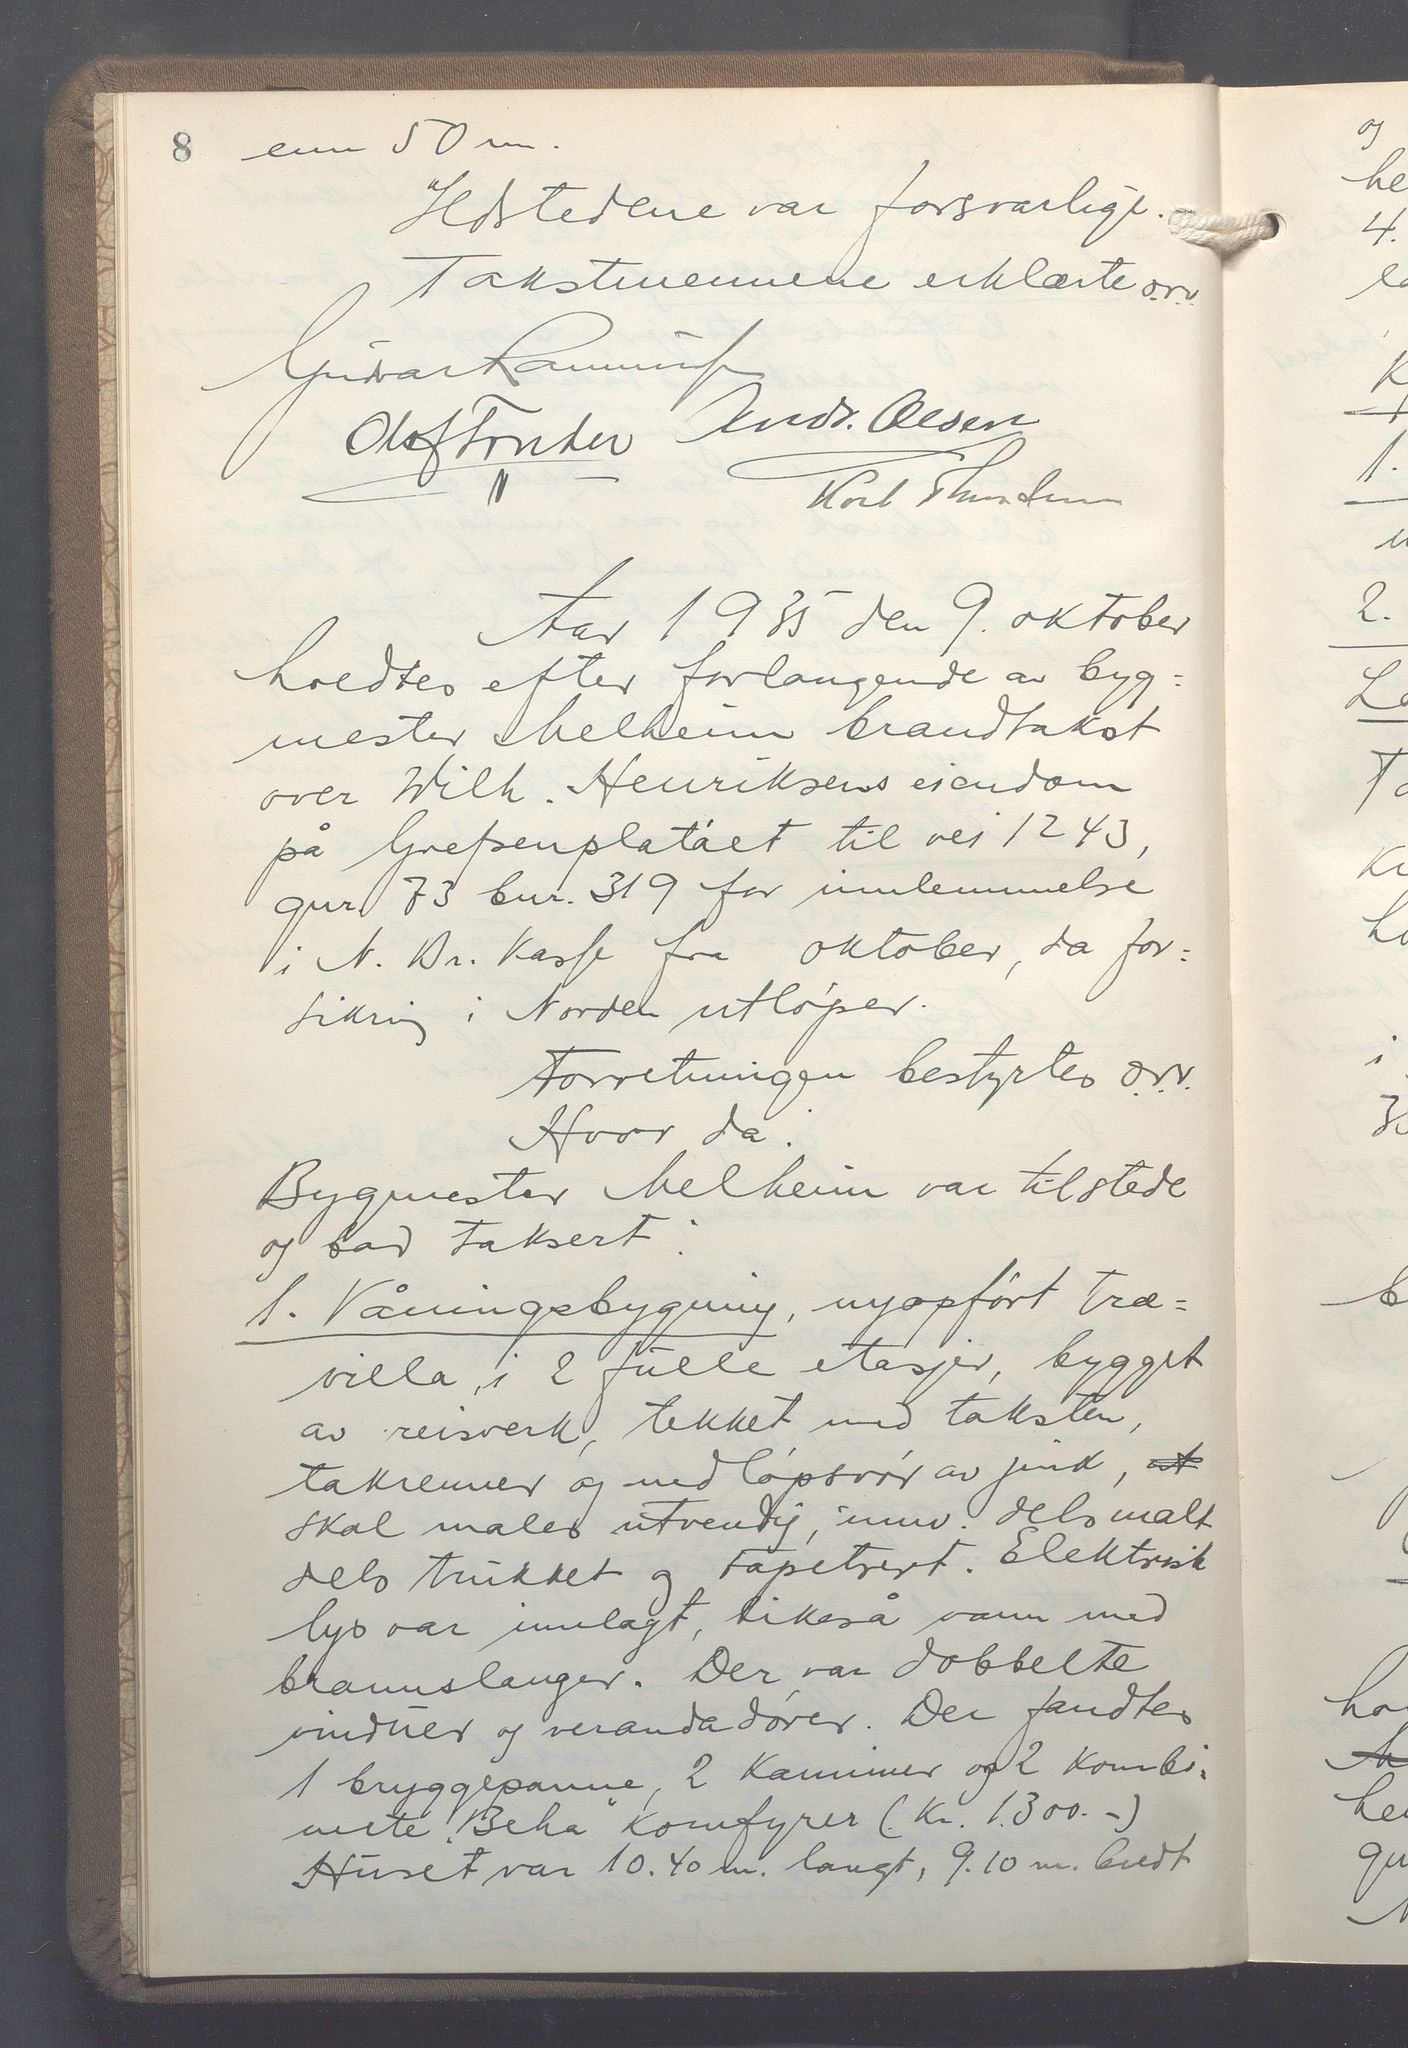 8 enn 50 m.
Ildstedene var forsvarlige.
Takstmennene erklærte o.v.v.
Olaf
Andr. Olsen
Karl
Aar 1935 den 9. oktober
holdtes efter forlangende av byg=
mester Melheim brandtakst
over Wilh. Henriksens eiendom
på Grefsenplatået til vei 1243,
gnr. 73 bnr. 319 for innlemmelse
i N. Br. Kasse fra oktober, da for=
sikring i Norden utløper.
Forretningen bestyrtes o.v.v.
Hvor da:
Bygmester Melheim var tilstede
og bad taksert:
1. Våningsbygning, nyopført træ=
villa, i 2 fulle etasjer, bygget
av reisverk, tekket med taksten,
takrenner og nedløpsrør av zink, ut
skal males utvendig, innv. dels malt
dels trukket og tapetsert. Elektrisk
lys var innlagt, likeså vann med
brannslanger. Der var dobbelte
vinduer og verandadører. Der fandtes
1 bryggepanne, 2 kaminer og 2 kombi-
nerte "Beha" komfyrer (Kr. 1.300.-)
Huset var 10.40 m. langt, 9.10 m. bredt
og
he
4.
1.
2.
i